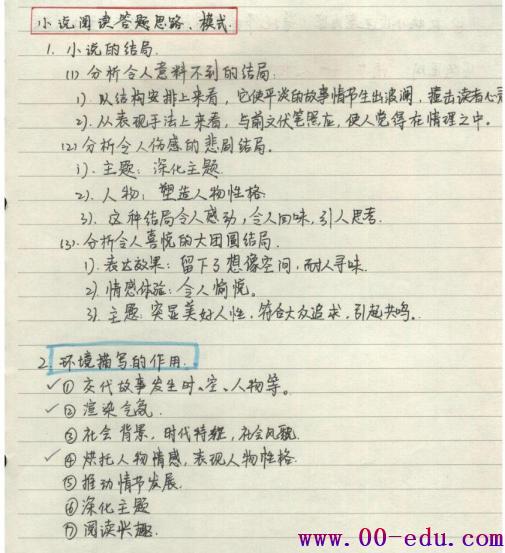 小说阅读答题思路、模式.
1. 小说的结局.
(1) 分析令人意料不到的结局.
1). 从结构安排上来看，它使平淡的故事情节生出波澜，撞击读者心灵
2). 从表现手法上来看，与前文伏笔照应，使人觉得在情理之中。
(2) 分析令人伤感的悲剧结局。
1). 主题：深化主题.
2). 人物：塑造人物性格.
3). 这种结局令人感动，令人回味，引人思考.
(3). 分析令人喜悦的大团圆结局.
1). 表达效果：留下了想像空间，耐人寻味.
2). 情感体验：令人愉悦。
3). 主题：突显美好人性，符合大众追求，引起共鸣.
2. 环境描写的作用.
✓① 交代故事发生时、空、人物等。
✓② 渲染气氛.
③ 社会背景，时代特征，社会风貌.
✓④ 烘托人物情感，表现人物性格.
⑤ 推动情节发展.
⑥ 深化主题
⑦ 阅读兴趣.
www.00-edu.com